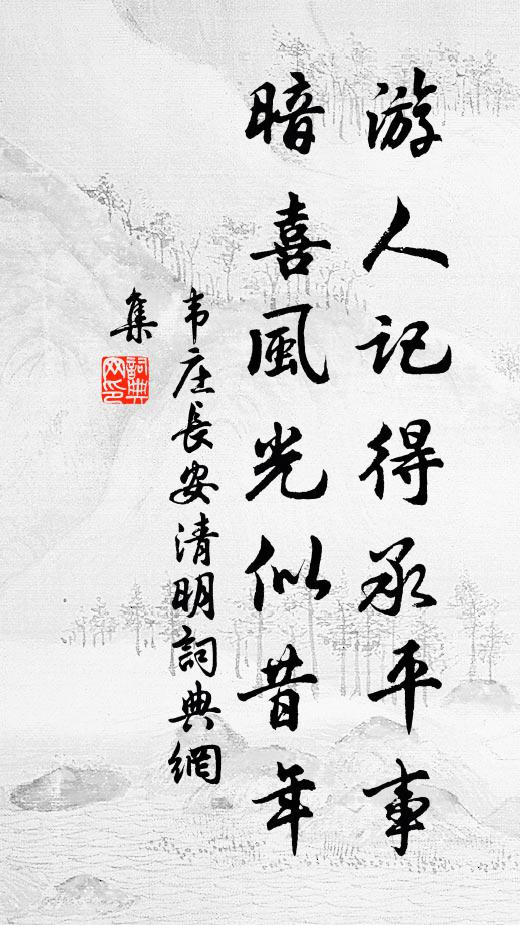 游人记得承平事
暗喜風光似昔年
韦庄長安清明詞典網
集
詞典
网印